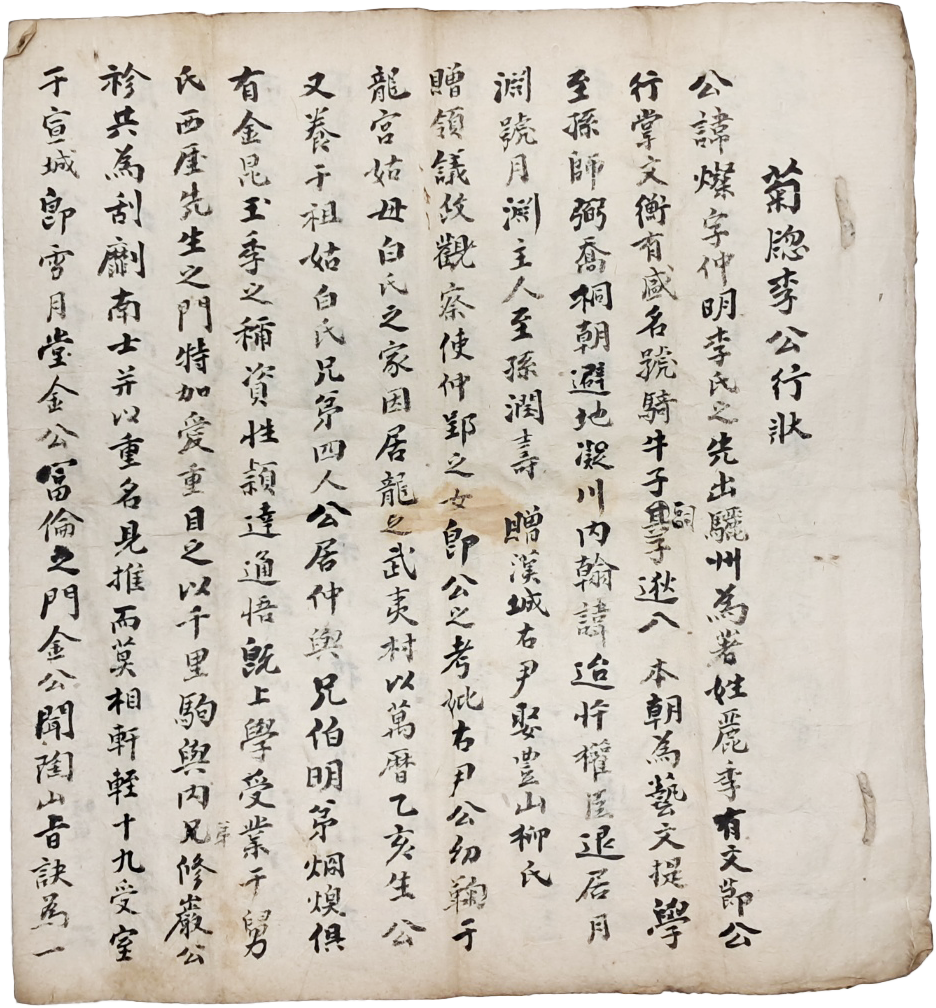 菊牕李公行狀
公諱燦字仲明李氏之先出驪州為著姓麗季有文節公
行掌文衡有盛名號騎牛子其子詞逖入 本朝為藝文提學
至孫師弼喬桐朝避地凝川內翰諱迨忤權臣退居月
淵號月淵主人至孫潤壽 贈漢城右尹娶豊山柳氏
贈領議政觀察使仲郢之女卽公之考妣右尹公幼鞠于
龍宮姑母白氏之家因居龍之武夷村以萬曆乙亥生公
又養于祖姑白氏兄弟四人公居仲與兄伯明弟烱煥俱
有金昆玉季之稱資性穎達通悟旣上學受業于舅
氏西厓先生之門特加愛重目之以千里駒與內兄弟修巖公
袗共為刮劘南士并以重名見推而莫相軒輊十九受室
于宣城卽雪月堂金公富倫之門金公聞陶山旨訣為一